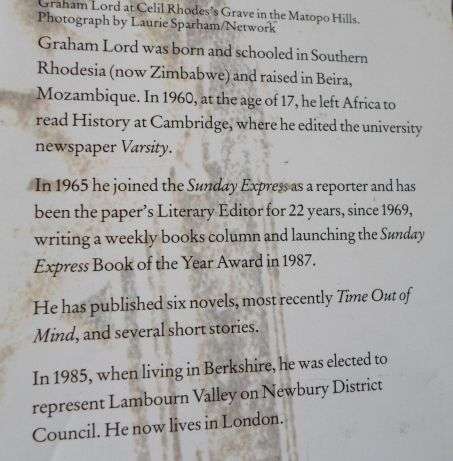 Graham Lord at Celil Rhodes's Grave in the Matopo Hills.
Photograph by Laurie Sparham/Network
Graham Lord was born and schooled in Southern
Rhodesia (now Zimbabwe) and raised in Beira,
Mozambique. In 1960, at the age of 17, he left Africa to
read History at Cambridge, where he edited the university
newspaper Varsity.
In 1965 he joined the Sunday Express as a reporter and has
been the paper's Literary Editor for 22 years, since 1969,
writing a weekly books column and launching the Sunday
Express Book of the Year Award in 1987.
He has published six novels, most recently Time Out of
Mind, and several short stories.
In 1985, when living in Berkshire, he was elected to
represent Lambourn Valley on Newbury District
Council. He now lives in London.